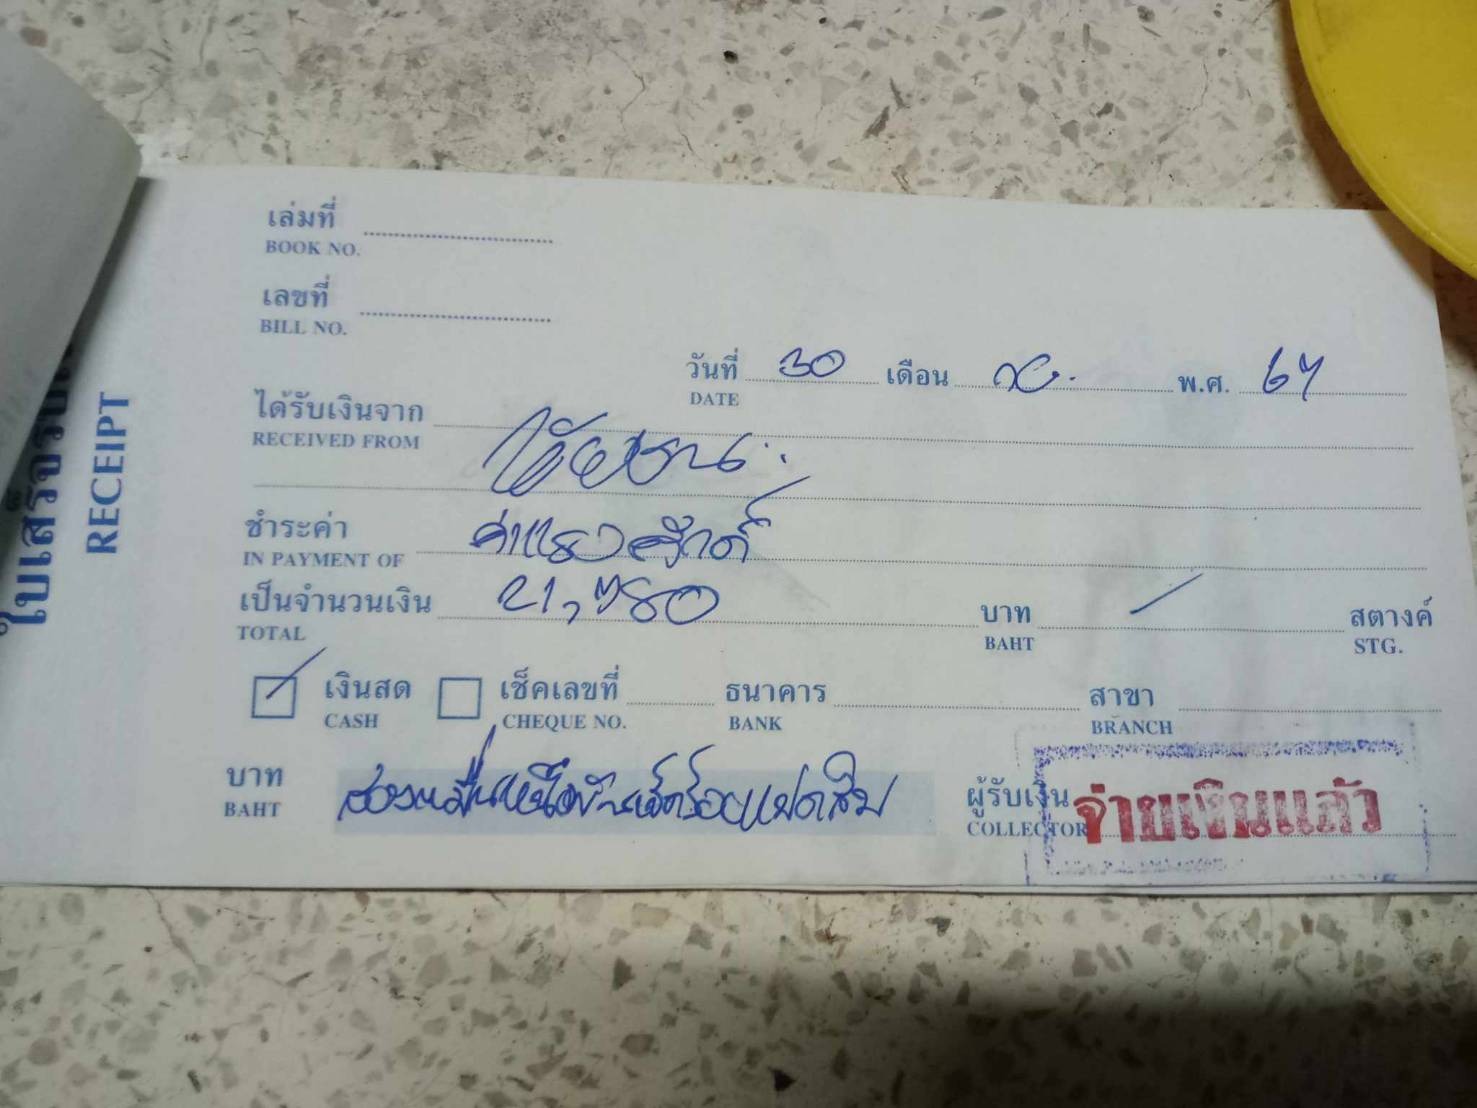 ใบเสร็จรับเงิน
RECEIPT
เล่มที่
BOOK NO.
เลขที่
BILL NO.
วันที่ 30 เดือน กย. พ.ศ. 67
DATE
ได้รับเงินจาก
RECEIVED FROM
ชำระค่า ค่าแรงศักดิ์
IN PAYMENT OF
เป็นจำนวนเงิน 21,780 บาท / สตางค์
TOTAL BAHT STG.
เงินสด เช็คเลขที่ ธนาคาร สาขา
CASH CHEQUE NO. BANK BRANCH
บาท สองหมื่นหนึ่งพันเจ็ดร้อยแปดสิบ ผู้รับเงิน จ่ายเงินแล้ว
BAHT COLLECTOR